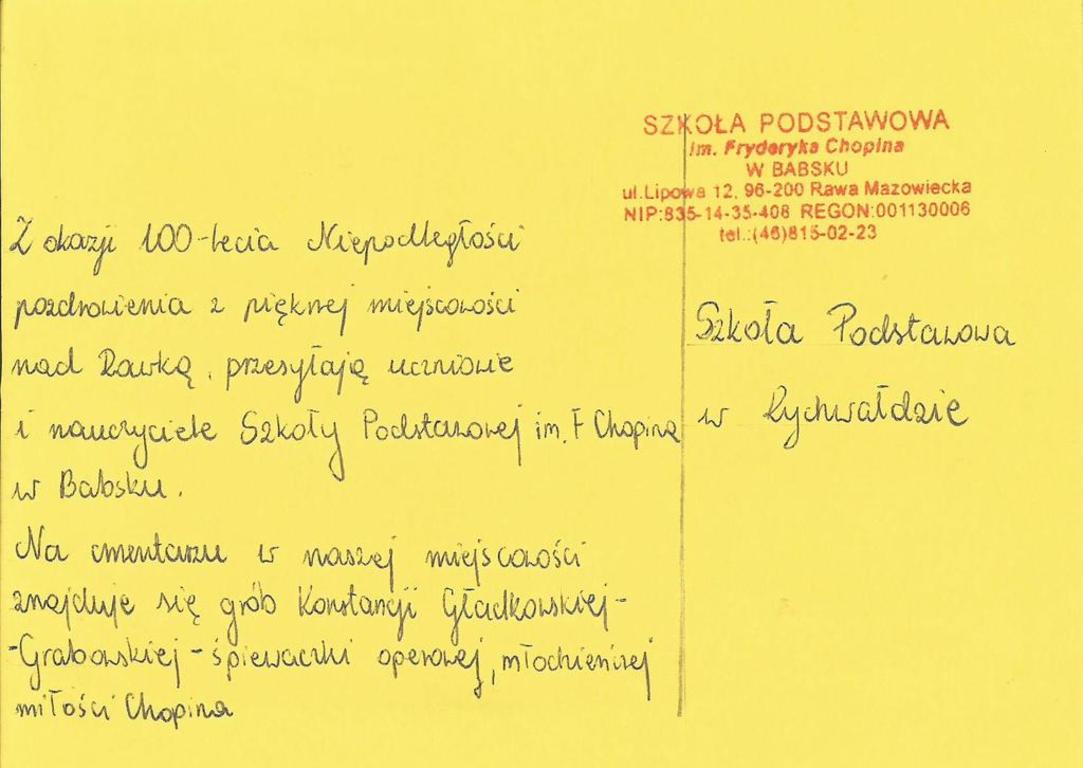 SZKOŁA PODSTAWOWA
im. Fryderyka Chopina
W BABSKU
ul.Lipowa 12, 96-200 Rawa Mazowiecka
NIP:835-14-35-408 REGON:001130006
tel.:(46)815-02-23
Z okazji 100-lecia Niepodległości
pozdrowienia z pięknej miejscowości
nad Rawką, przesyłają uczniowie
i nauczyciele Szkoły Podstawowej im. F Chopina
w Babsku.
Na cmentarzu w naszej miejscowości
znajduje się grób Konstancji Gładkowskiej-
-Grabowskiej - śpiewaczki operowej, młodzieńczej
miłości Chopina
Szkoła Podstawowa
w Rychwałdzie